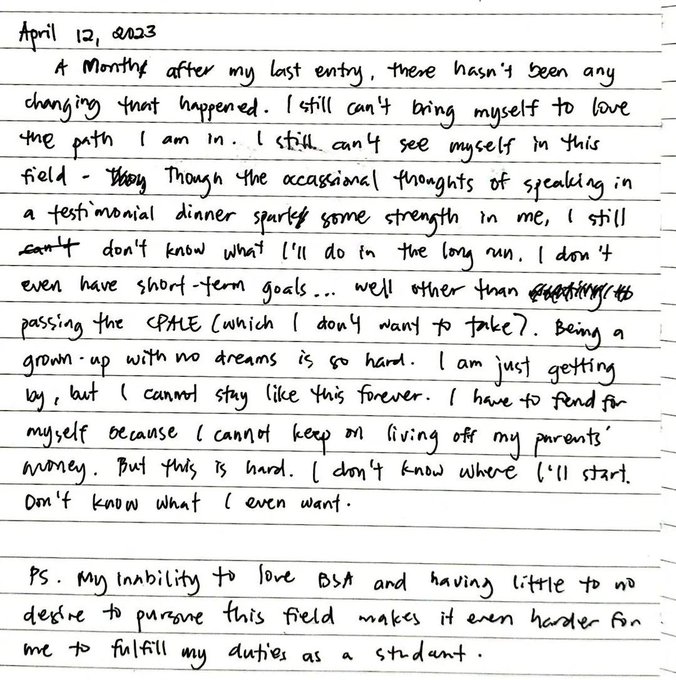 April 12, 2023
A Month after my last entry, there hasn't been any
changing that happened. I still can't bring myself to love
the path I am in. I still can't see myself in this
field - Though the occassional thoughts of speaking in
a testimonial dinner spark some strength in me, I still
can't don't know what I'll do in the long run. I don't
even have short-term goals... well other than
passing the CPALE (which I don't want to take?. Being a
grown-up with no dreams is so hard. I am just getting
by, but I cannot stay like this forever. I have to fend for
myself because I cannot keep on living off my parents'
money. But this is hard. I don't know where I'll start.
Don't know what I even want.
PS. My inability to love BSA and having little to no
desire to pursue this field makes it even harder for
me to fulfill my duties as a student.